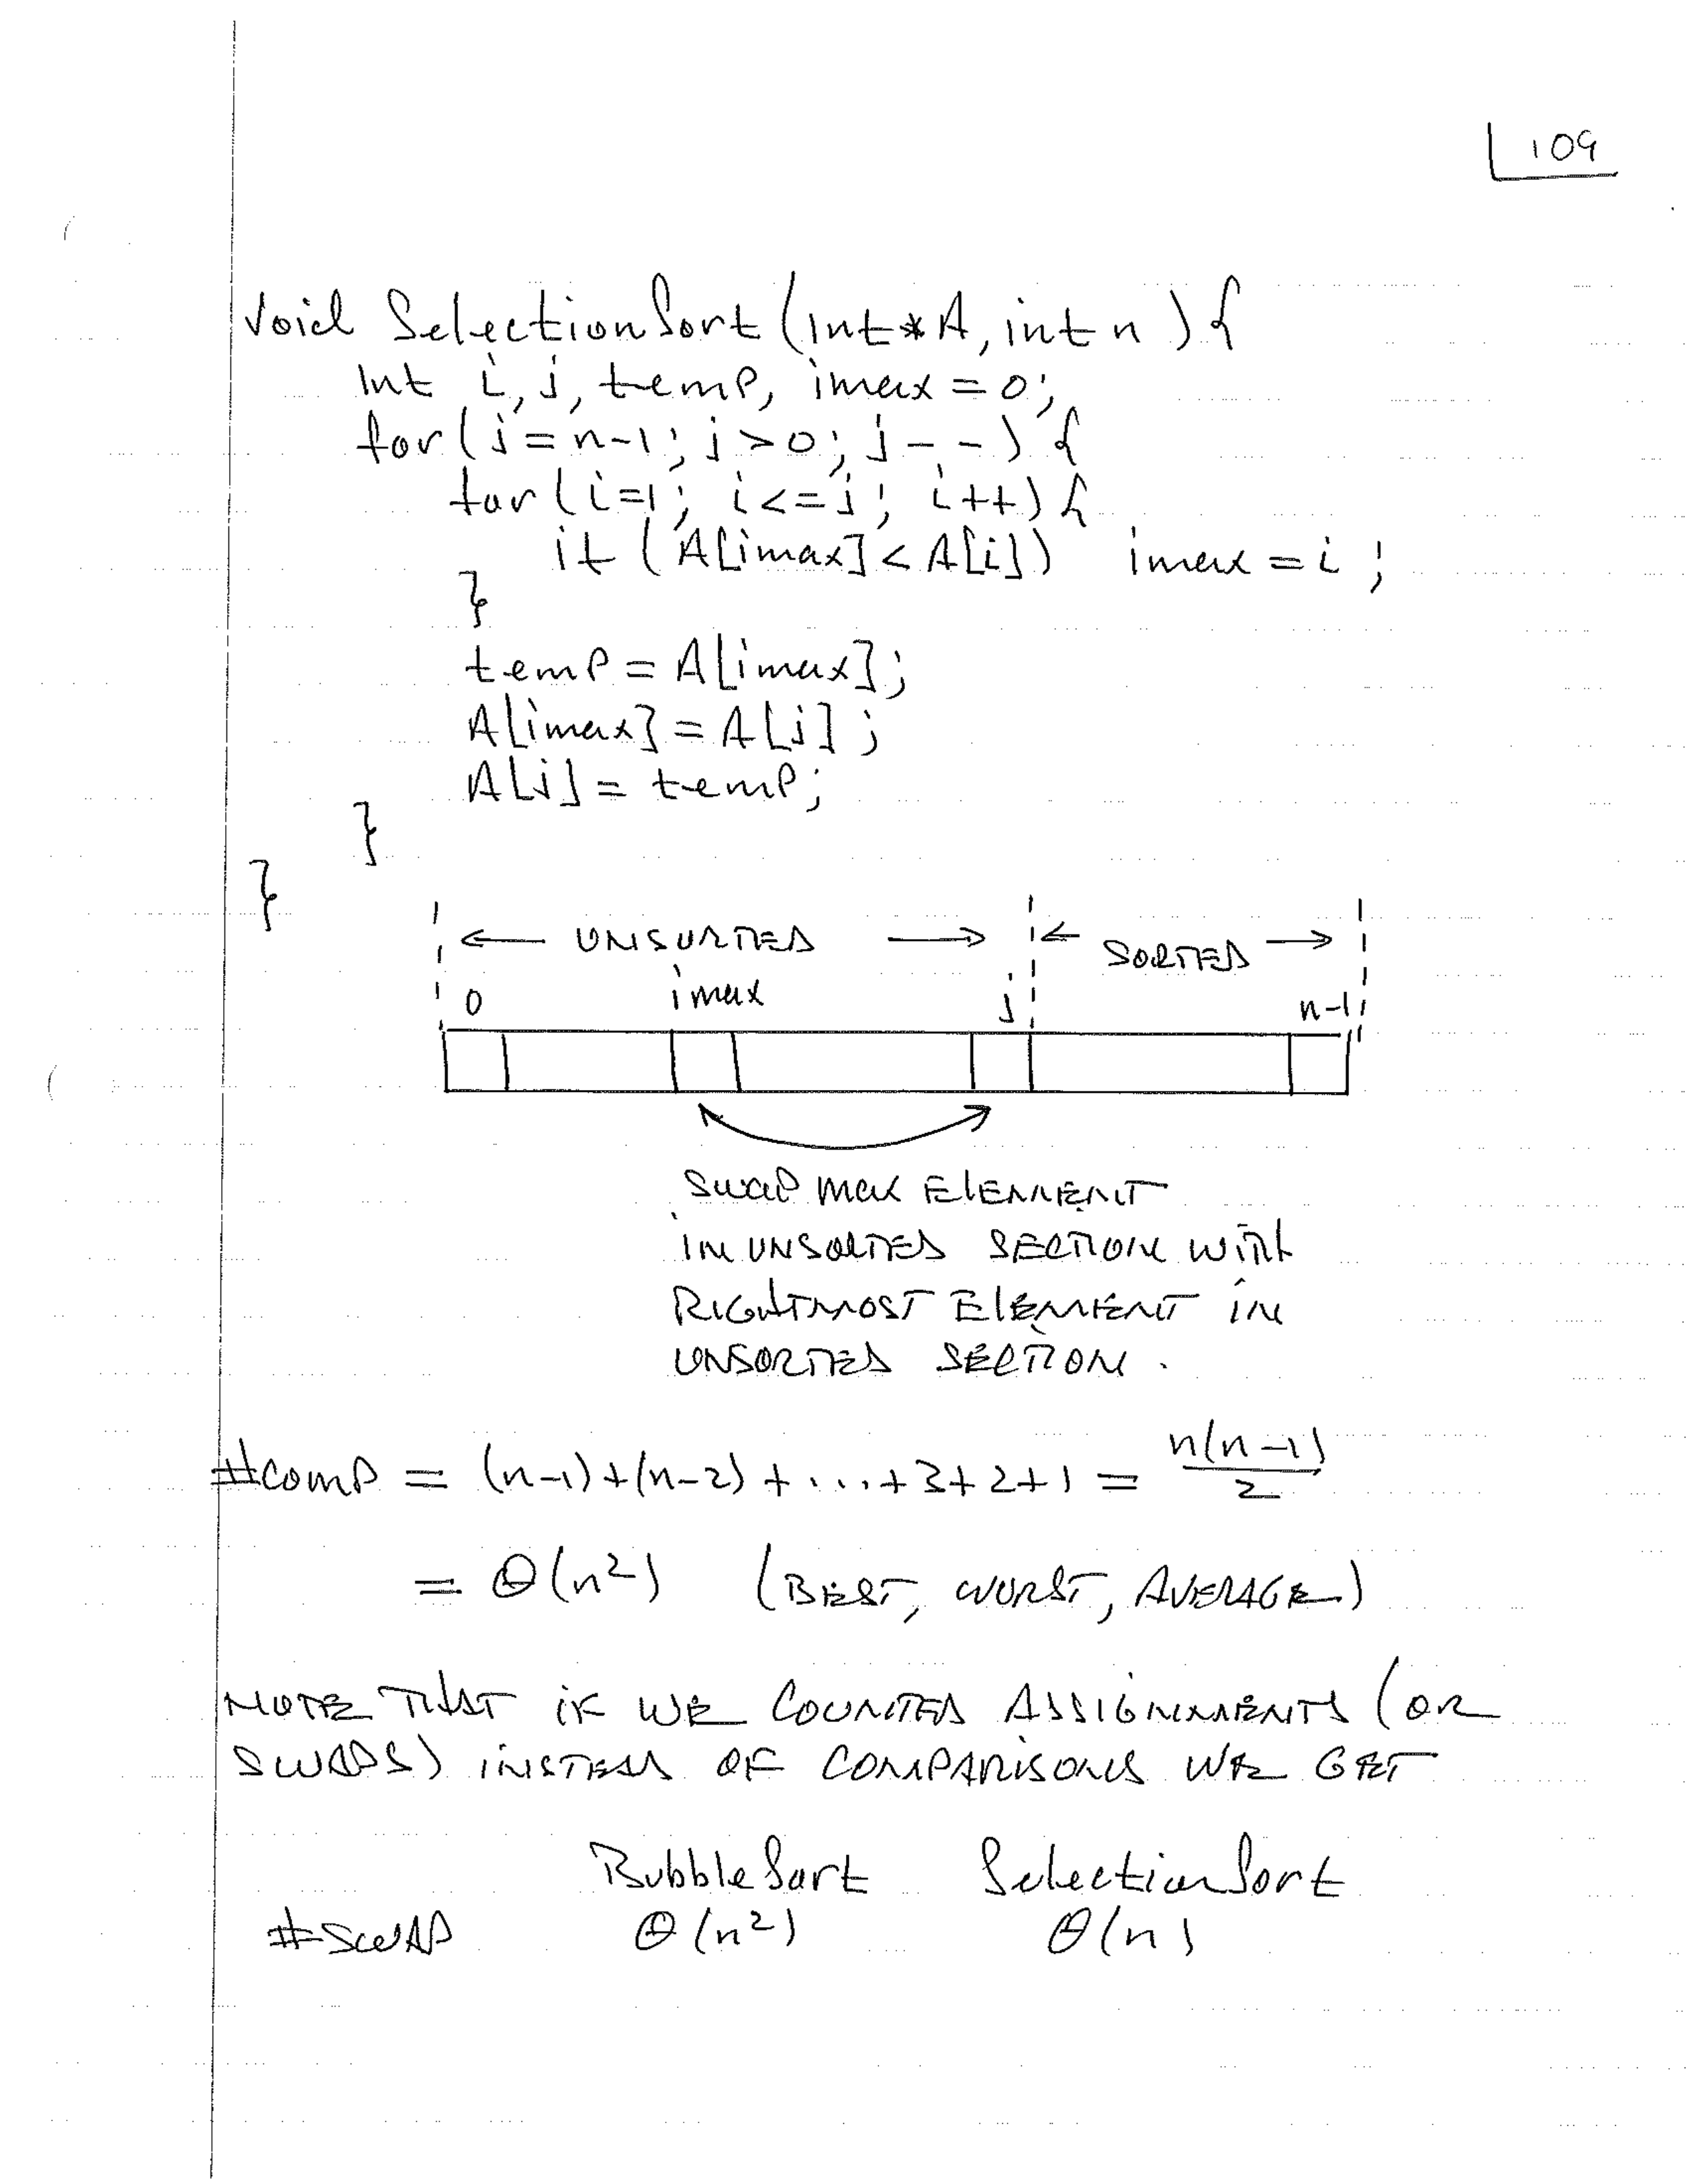 109
void SelectionSort(int*A, int n){
int i, j, temp, imax = 0;
for(j = n-1; j > 0; j--){
for(i=1; i<=j; i++){
if (A[imax] < A[i]) imax = i;
}
temp = A[imax];
A[imax] = A[j];
A[j] = temp;
}
}
← UNSORTED → ← SORTED →
0 imax j n-1
SWAP MAX ELEMENT
IN UNSORTED SECTION WITH
RIGHTMOST ELEMENT IN
UNSORTED SECTION.
#COMP = (n-1)+(n-2)+...+3+2+1 = n(n-1)/2
= Θ(n²) (BEST, WORST, AVERAGE)
NOTE THAT IF WE COUNTED ASSIGNMENTS (OR
SWAPS) INSTEAD OF COMPARISONS WE GET
BubbleSort SelectionSort
#SWAP Θ(n²) Θ(n)